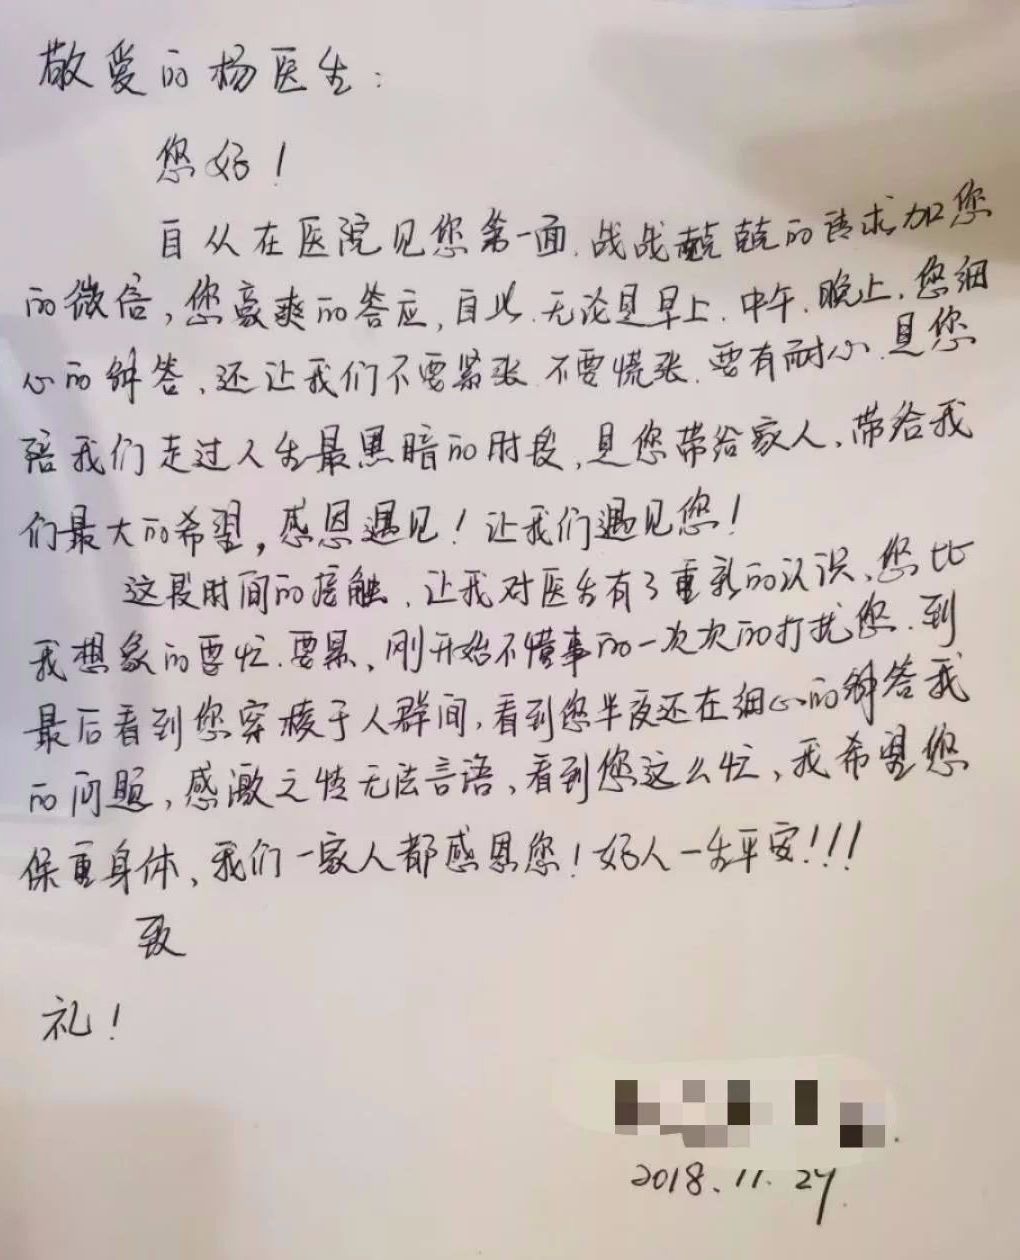 敬爱的杨医生:
您好!
自从在医院见您第一面,战战兢兢的请求加您
的微信,您豪爽的答应,自此.无论是早上.中午.晚上.您细
心的解答,还让我们不要紧张.不要慌张.要有耐心.是您
陪我们走过人生最黑暗的时段,是您带给家人,带给我
们最大的希望,感恩遇见!让我们遇见您!
这段时间的接触,让我对医生有了重新的认识、您比
我想象的要忙.要累,刚开始不懂事的一次次的打扰您.到
最后看到您穿梭于人群间,看到您半夜还在细心的解答我
的问题,感激之情无法言语,看到您这么忙,我希望您
保重身体,我们一家人都感恩您!好人一生平安!!!
致
礼!
2018.11.27